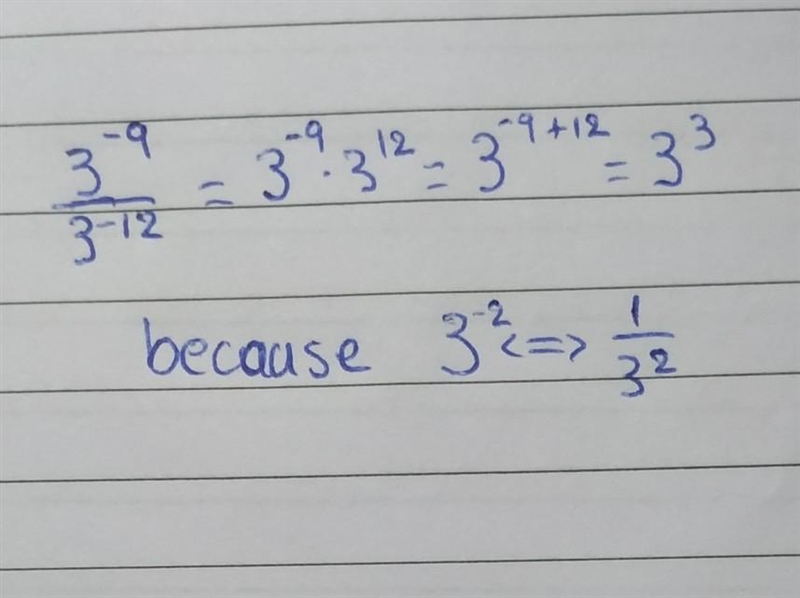 3⁻⁹/3⁻¹² = 3⁻⁹ · 3¹² = 3⁻⁹⁺¹² = 3³
because 3⁻² <=> 1/3²